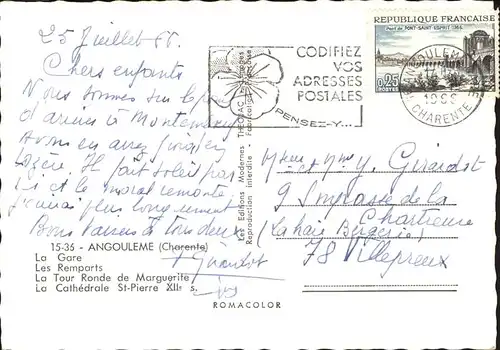 25 Juillet 66.
Chers enfants
Nous sommes sur le point
d'arriver à Montembœuf
Avons en avez
Il fait soleil par
ici et le moral remonte
J'aurai plus longuement
Bons baisers à tous deux
15-36 - ANGOULEME (Charente)
La Gare
Les Remparts
La Tour Ronde de Marguerite
La Cathédrale St-Pierre XIIe s.
Girardot
Les Editions Modernes THEOJAC
Reproduction interdite -
ROMACOLOR
CODIFIEZ
VOS
ADRESSES
POSTALES
PENSEZ-Y...
REPUBLIQUE FRANÇAISE
Pont de PONT-SAINT-ESPRIT
0,25
POSTES
ANGOULEME
1966
CHARENTE
Mr et Mme Y. Girardot
9 Impasse de la
Chartreuse
(La haie Bergerie)
78 Villepreux